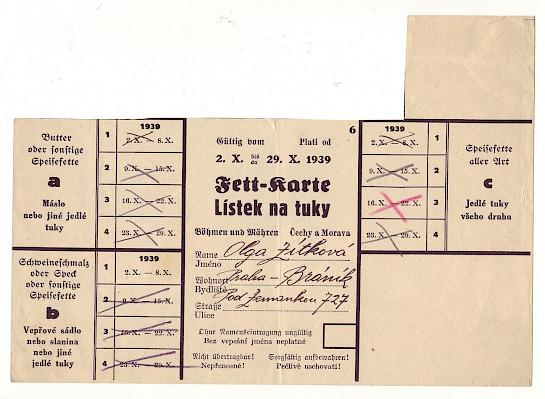 Butter
oder sonstige
Speisefette
a
Máslo
nebo jiné jedlé
tuky
1939
1 2. X. — 8. X.
2 9. X. — 15. X.
3 16. X. — 22. X.
4 23. X. — 29. X.
Schweineschmalz
oder Speck
oder sonstige
Speisefette
b
Vepřové sádlo
nebo slanina
nebo jiné
jedlé tuky
1939
1 2. X. — 8. X.
2 9. X. — 15. X.
3 15. X. — 22. X.
4 23. X. — 29. X.
6
Gültig vom Platí od
2. X. bis do 29. X. 1939
Fett-Karte
Lístek na tuky
Böhmen und Mähren Čechy a Morava
Name Jméno Olga Zítková
Wohnort Bydliště Praha - Bráník
Straße Ulice Pod Zemankou 727
Ohne Nameneintragung ungültig
Bez vepsání jména neplatné
Nicht übertragbar! Sorgfältig aufbewahren!
Nepřenosné! Pečlivě uschovati!
1939
2. X. — 8. X. 1
9. X. — 15. X. 2
16. X. — 22. X. 3
23. X. — 29. X. 4
Speisefette
aller Art
c
Jedlé tuky
všeho druhu